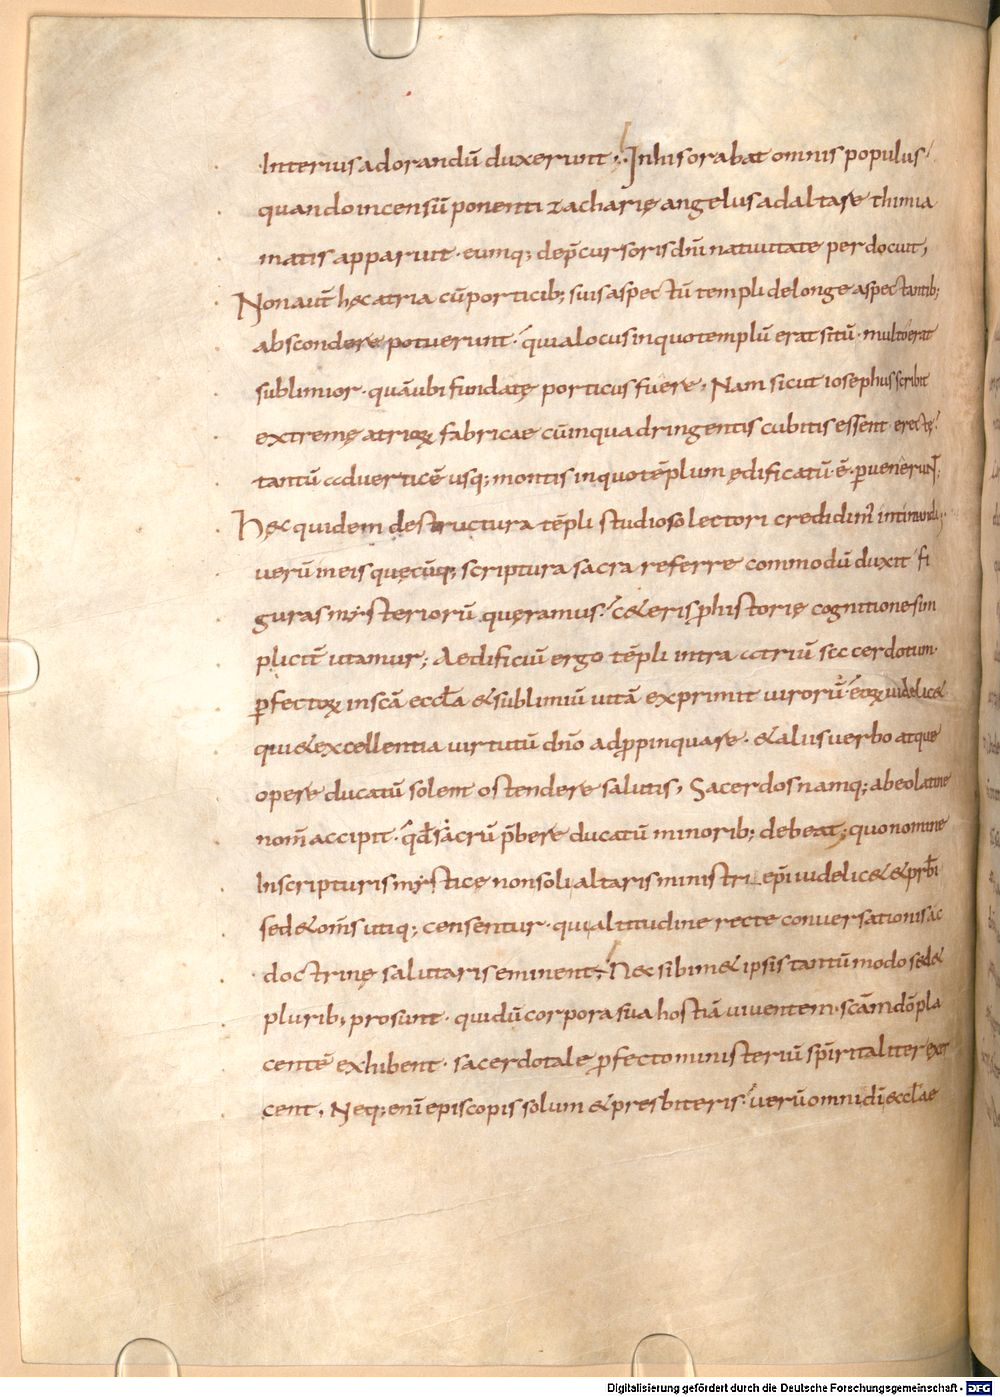 Interius adorandū duxerunt;. In his orabat omnis populus
quando incensū ponenti zacharię angelus ad altare thimia
matis apparuit· eumq; de p̄cursoris dn̄i nativitate perdocuit,
Non aut̄ hęc atria cū porticib; suis aspectū templi de longe aspectantib;
abscondere potuerunt· quia locus in quo templū erat sitū· multo erat
sublimior· quā ubi fundatę porticus fuere, Nam sicut iosephus scribit
extremę atrioꝝ fabricae cūm quadringentis cubitis essent erectę·
tantū ad verticē usq; montis in quo tēplum ędificatū ē· ꝑvenerunt;
Hęc quidem de structura tēpli studioso lectori credidim' intimanda;
verū in eis quęcūq; scriptura sacra referre commodū duxit fi
guras mysteriorū quęramus· ceteris ꝓ historię cognitione sim
plicit̄ utamur; Aedificiū ergo tēpli intra atriū sacerdotum·
ꝑfectoꝝ in scā eccl̄a & sublimiū vitā exprimit virorū· eoꝝ videlic&
qui & excellentia virtutū dn̄o adꝓpinquare· & aliis verbo atque
opere ducatū solent ostendere salutis, Sacerdos namq; abeo latine
nom̄ accipit· qd̄ sacrū p̄bere ducatū minorib; debeat; quo nomine
In scripturis mysticę non soli altaris ministri ep̄i videlic& & prb̄i
sed & om̄s utiq; censentur· qui altitudine recte conversationis ac
doctrinę salutaris eminent; Nec sibim& ipsis tantū modo sed &
plurib; prosunt· qui dū corpora sua hostiā viventem· scām dō pla
centē exhibent· sacerdotale ꝑfecto ministeriū sp̄iritaliter exer
cent, Neq; enī episcopis solum & presbiteris· verū omni dī eccl̄ae
Digitalisierung gefördert durch die Deutsche Forschungsgemeinschaft - DFG